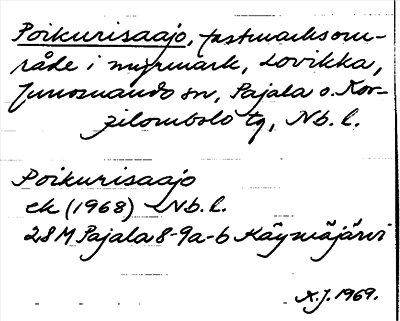 Poikurisaajo, fastmarksom-
råde i myrmark, Lovikka,
Junosuando sn, Pajala o. Kor-
pilombolo tg, Nb. l.
Poikurisaajo
ek (1968) Nb. l.
28M Pajala 8-9a-b Käymäjärvi
X.J. 1969.